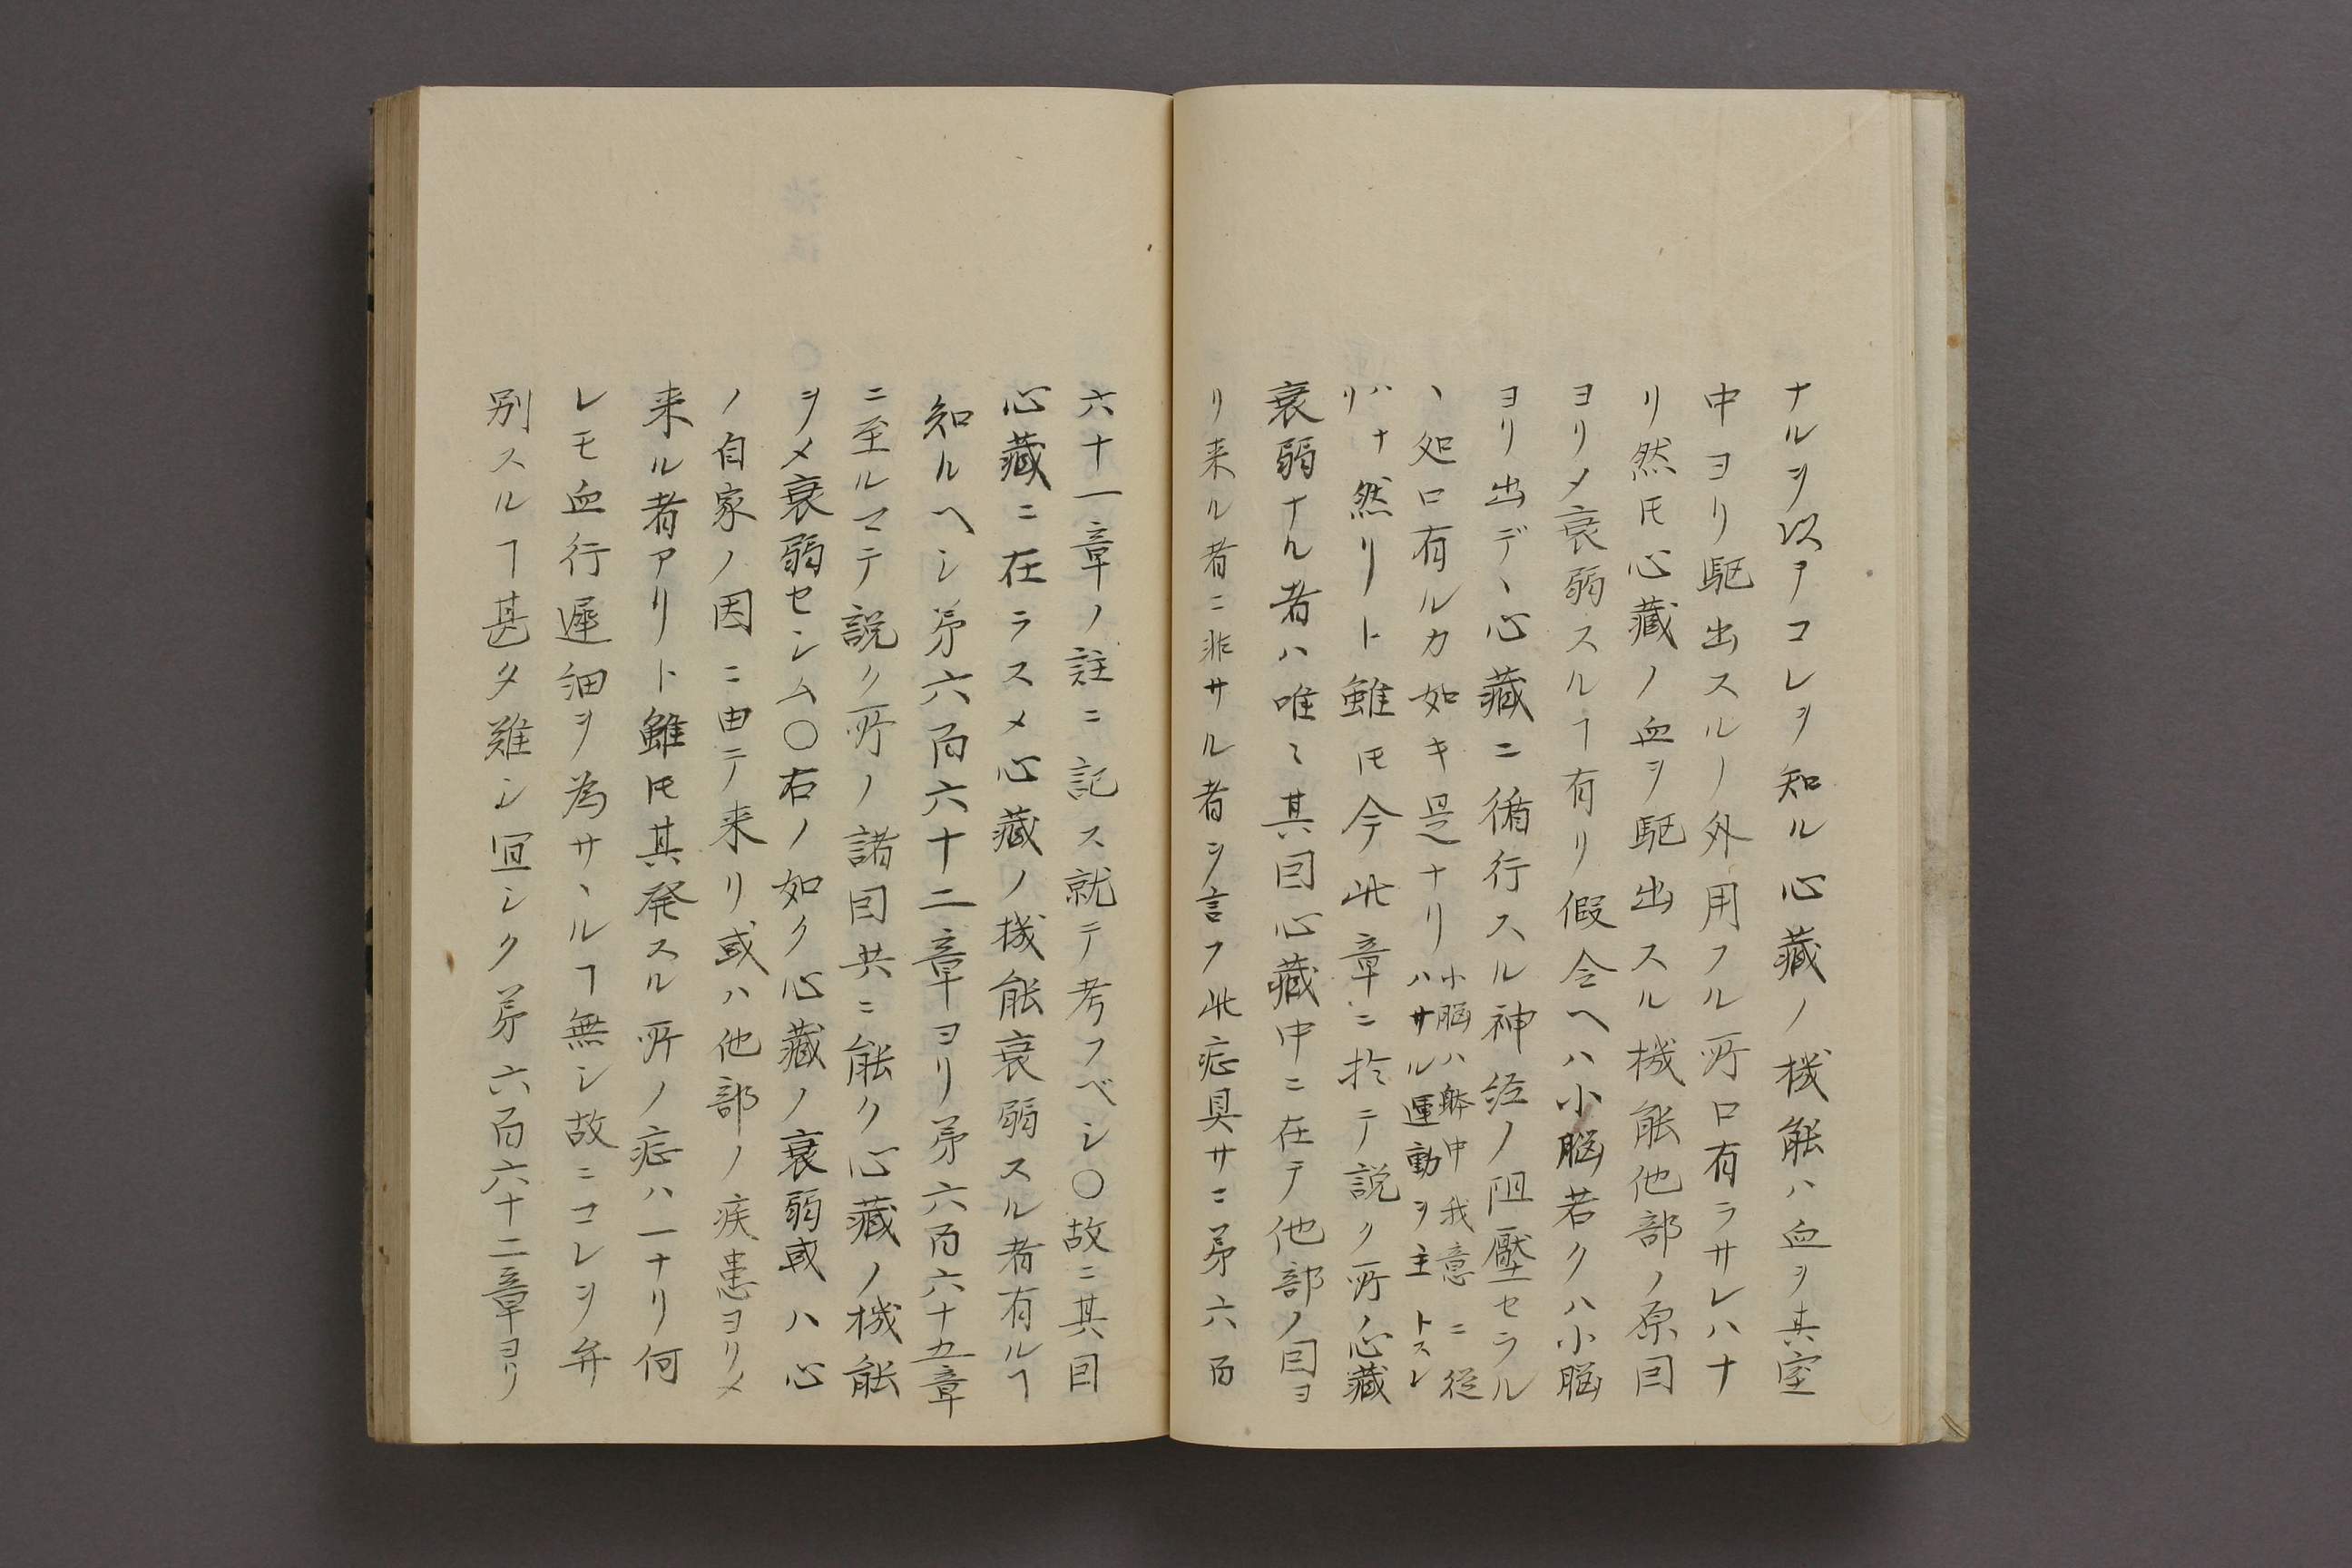 ナルヲ以テコレヲ知ル心藏ノ機能ハ血ヲ其室
中ヨリ駆出スルノ外用フル所ロ有ラサレハナ
リ然𪜈心藏ノ血ヲ駆出スル機能他部ノ原因
ヨリメ衰弱スルヿ有リ假令ヘハ小脳若クハ小脳
ヨリ出デヽ心藏ニ循行スル神経ノ阻壓セラル
ヽ処ロ有ルカ如キ是ナリ小脳ハ體中我意ニ從
ハサル運動ヲ主トスレ
ハナ
リ
然リト雖𪜈今此章ニ於テ説ク所ノ心藏
衰弱ナル者ハ唯〻其因心藏中ニ在テ他部ノ因ヨ
リ来ル者ニ非サル者ヲ言フ此症具サニ㐧六百
六十一章ノ註ニ記ス就テ考フベシ〇故ニ其因
心藏ニ在ラスメ心藏ノ機能衰弱スル者有ルヿ
知ルヘシ㐧六百六十二章ヨリ㐧六百六十五章
ニ至ルマテ説ク所ノ諸因共ニ能ク心藏ノ機能
ヲメ衰弱セシム〇右ノ如ク心藏ノ衰弱或ハ心
ノ自家ノ因ニ由テ来リ或ハ他部ノ疾患ヨリメ
来ル者アリト雖𪜈其発スル所ノ症ハ一ナリ何
レモ血行遲細ヲ為サヽルヿ無シ故ニコレヲ弁
別スルヿ甚タ難シ冝シク㐧六百六十二章ヨリ